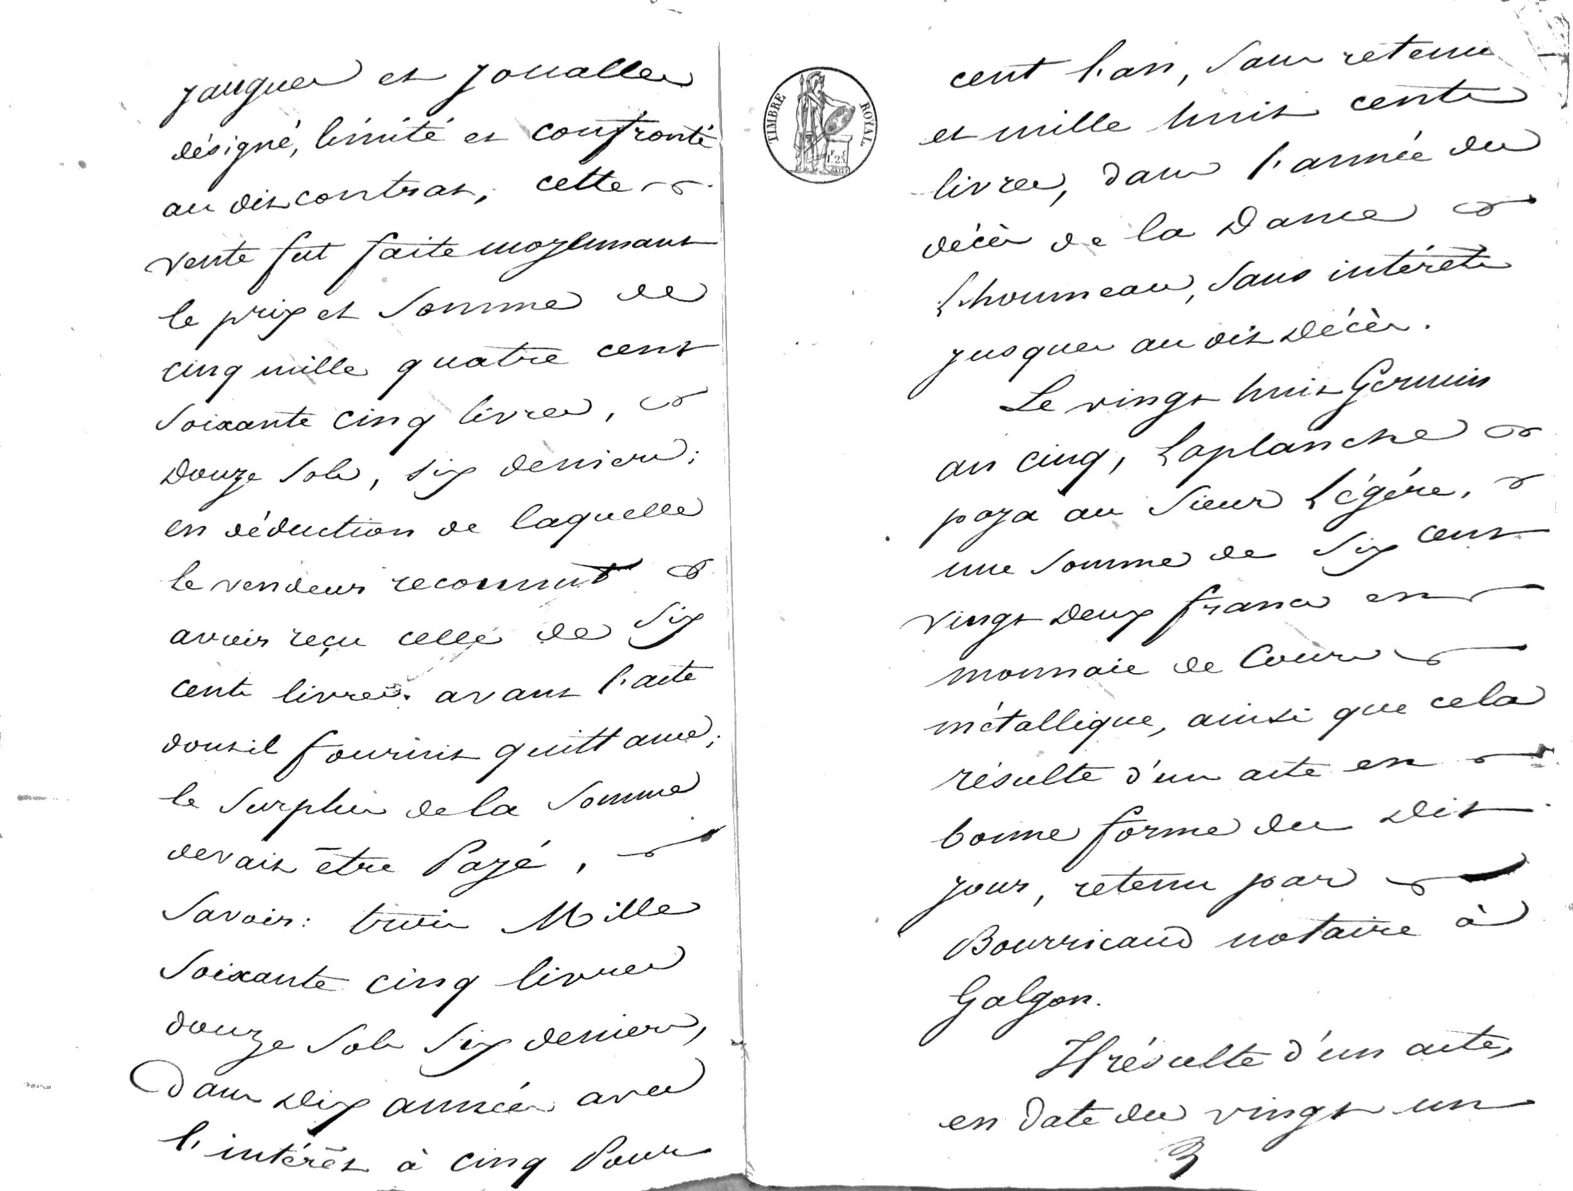 jauguer et Joualler
désigné, limité et confronté
au dit contrat, cette
vente fut faite moyennant
le prix et Somme de
cinq mille quatre cent
Soixante cinq livres,
Douze Sols, six deniers;
en déduction de laquelle
le vendeur reconnut
avoir reçu celle de Six
cents livres avant l'acte
dont il fournit quittance;
le Surplus de la Somme
devait être Payé,
Savoir: trois Mille
Soixante cinq livres
douze Sols Six deniers,
Dans Dix années avec
l'intérêt à cinq Pour
TIMBRE ROYAL
cent l'an, Sans retenue
et mille huit cents
livres, dans l'année du
décès de la Dame
Lhoumeau, Sans intérêts
jusques au dit Décès.
Le vingt huit Germin
an cinq, Laplanche
paya au Sieur Légére,
une Somme de Six cent
vingt Deux francs en
monnaie de Cours
métallique, ainsi que cela
résulte d'un acte en
bonne forme du Dit
jour, retenu par
Bourricaud notaire à
Galgon.
Il résulte d'un acte,
en Date du vingt un
3